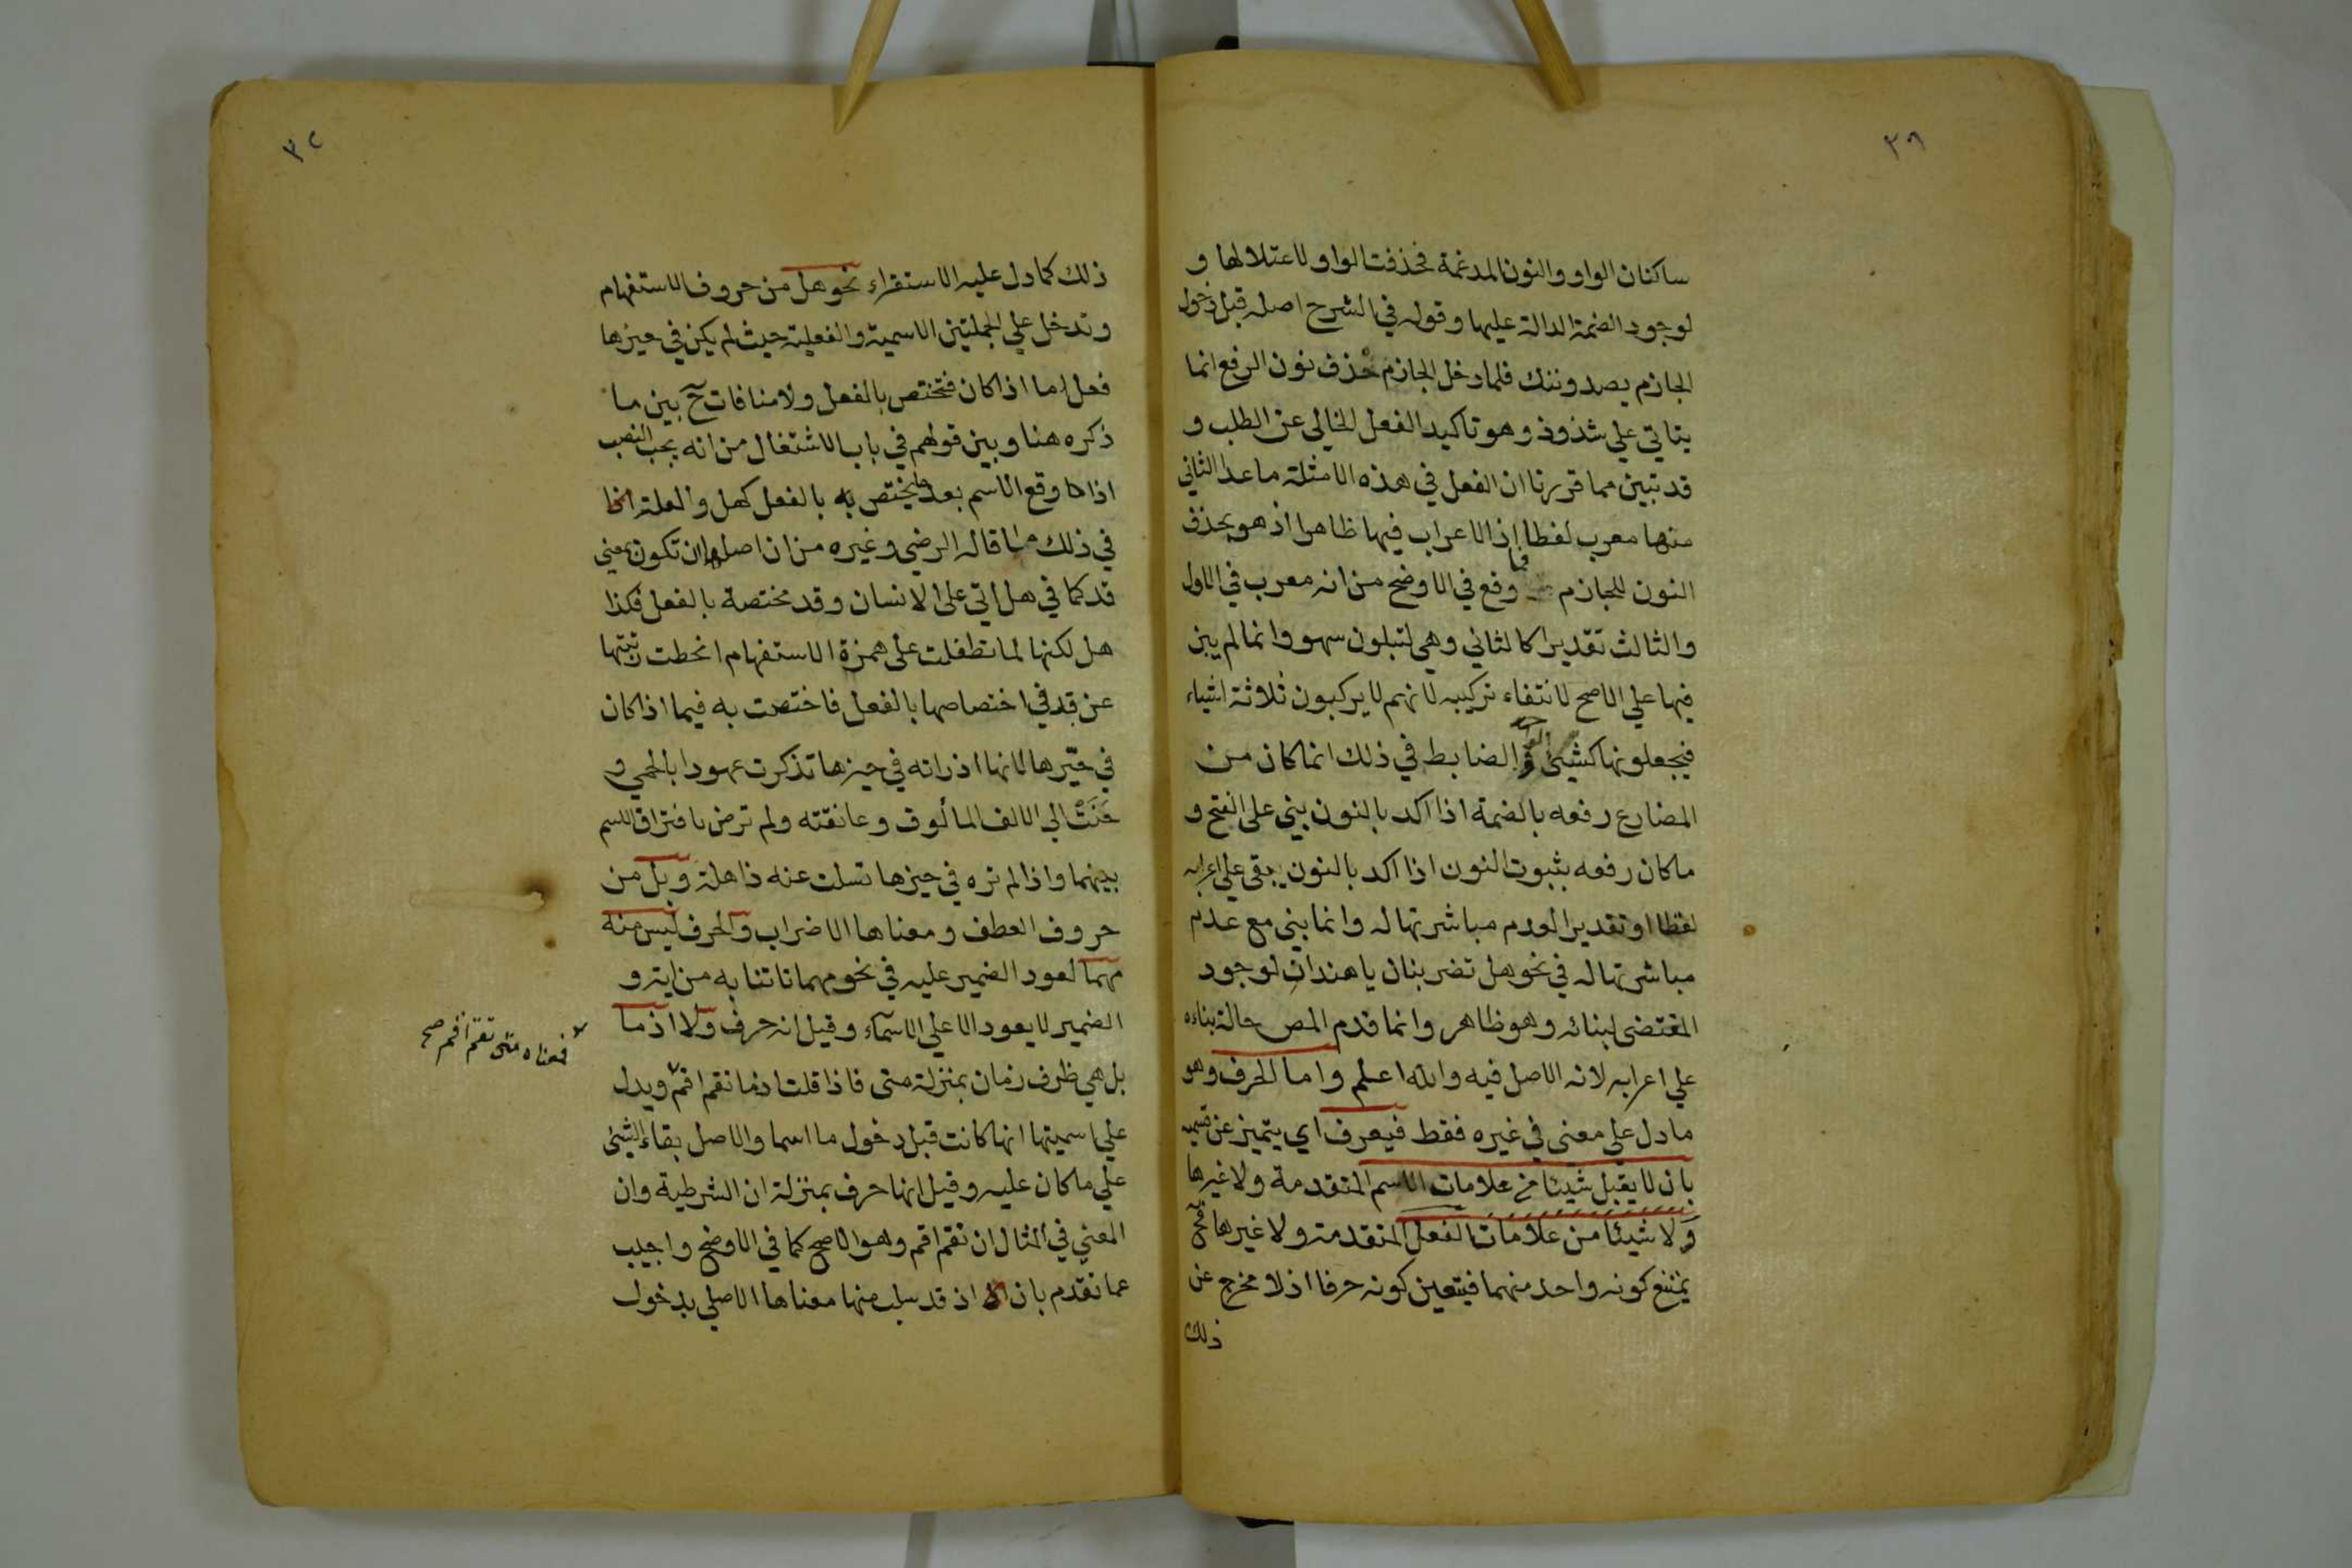 ساكنان الواو والنون المدغمة فحذفت الواو لاعتلالها و
لوجود الضمة الدالة عليها وقوله في الشرح اصله قبل دخول
الجازم يصدوننك فلما دخل الجازم حذف نون الرفع انما
يتاتي علي شذوذ وهو تاكيد الفعل الخالي عن الطلب و
قد تبين مما قررنا ان الفعل في هذه الامثلة ما عدا الثاني
منها معرب لفظا اذ الاعراب فيها ظاهر اذ هو بحذف
النون للجازم فما وقع في الاوضح من انه معرب في الاول
والثالث تقديرا كالثاني وهي لتبلون سهو وانما لم يبن
فيها علي الاصح لانتفاء تركيبه لانهم لا يركبون ثلاثة اشياء
فيجعلونها كشيئ والضابط في ذلك انما كان من
المضارع رفعه بالضمة اذا اكد بالنون بني على الفتح و
ماكان رفعه بثبوت النون اذا اكد بالنون يبقى علي اعرابه
لفظا او تقديرا لعدم مباشرتها له وانما بني مع عدم
مباشرتها له في نحو هل تضربنان يا هندات لوجود
المقتضى لبنائه وهو ظاهر وانما قدم المص حالة بناءه
علي اعرابه لانه الاصل فيه والله اعلم واما الحرف وهو
مادل علي معنى في غيره فقط فيعرف اي يتميز عن قسيميه
بان لا يقبل شيئا من علامات الاسم المتقدمة ولا غيرها
ولا شيئا من علامات الفعل المتقدمة ولا غيرها فح
يمتنع كونه واحد منهما فيتعين كونه حرفا اذ لا مخرج عن
ذلك
٣٢
ذلك كما دل عليه الاستقراء نحو هل من حروف الاستفهام
وتدخل علي الجملتين الاسمية والفعلية حيث لم يكن في حيزها
فعل اما اذا كان فتختص بالفعل ولا منافات ح بين ما
ذكره هنا وبين قولهم في باب الاشتغال من انه يجب النصب
اذا وقع الاسم بعد ما يختص به بالفعل كهل والعلة
في ذلك ما قاله الرضي وغيره من ان اصلها ان تكون بمعنى
قد كما في هل اتي على الانسان وقد مختصة بالفعل فكذا
هل لكنها لما تطفلت على همزة الاستفهام انحطت رتبتها
عن قد في اختصاصها بالفعل فاختصت به فيما اذا كان
في حيزها لانها اذ راته في حيزها تذكرت عهودا بالحمى و
حنت الي الالف المألوف وعانقته ولم ترض بافتراق الاسم
بينهما واذا لم تره في حيزها تسلت عنه ذاهلة وبل من
حروف العطف ومعناها الاضراب والحرف ليس منه
مهما لعود الضمير عليه في نحو مهما تاتنا به من اية و
الضمير لا يعود الا علي الاسماء وقيل انه حرف ولا اذما
بل هي ظرف زمان بمنزلة متى فاذا قلت اذما تقم اقم ويدل
فمعناه متى تقم اقم صح
علي اسميتها انها كانت قبل دخول ما اسما والاصل بقاء الشيئ
علي ماكان عليه وقيل انها حرف بمنزلة ان الشرطية وان
المعني في المثال ان تقم اقم وهو الاصح كما في الاوضح واجيب
عما تقدم بان اذ قد سلب منها معناها الاصلي بدخول